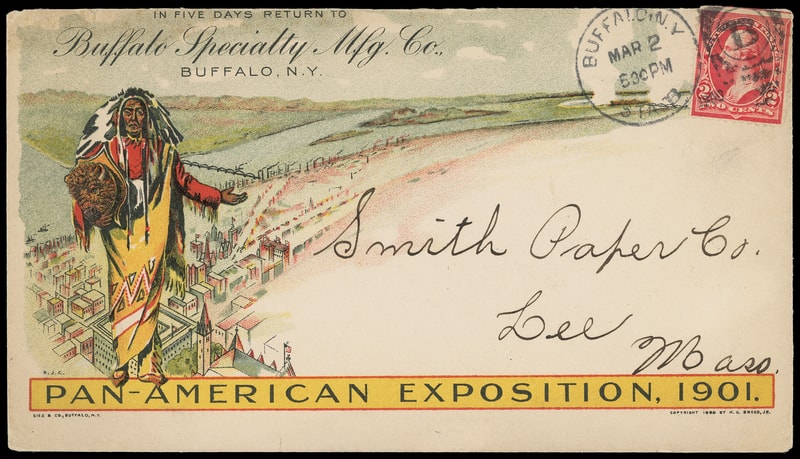 IN FIVE DAYS RETURN TO
Buffalo Specialty Mfg. Co.,
BUFFALO, N.Y.
BUFFALO, N.Y.
MAR 2
630PM
TWO CENTS 2
Smith Paper Co.
Lee
Mass.
R.J.C.
PAN-AMERICAN EXPOSITION, 1901.
& CO., BUFFALO, N.Y.
COPYRIGHT BY H. C.